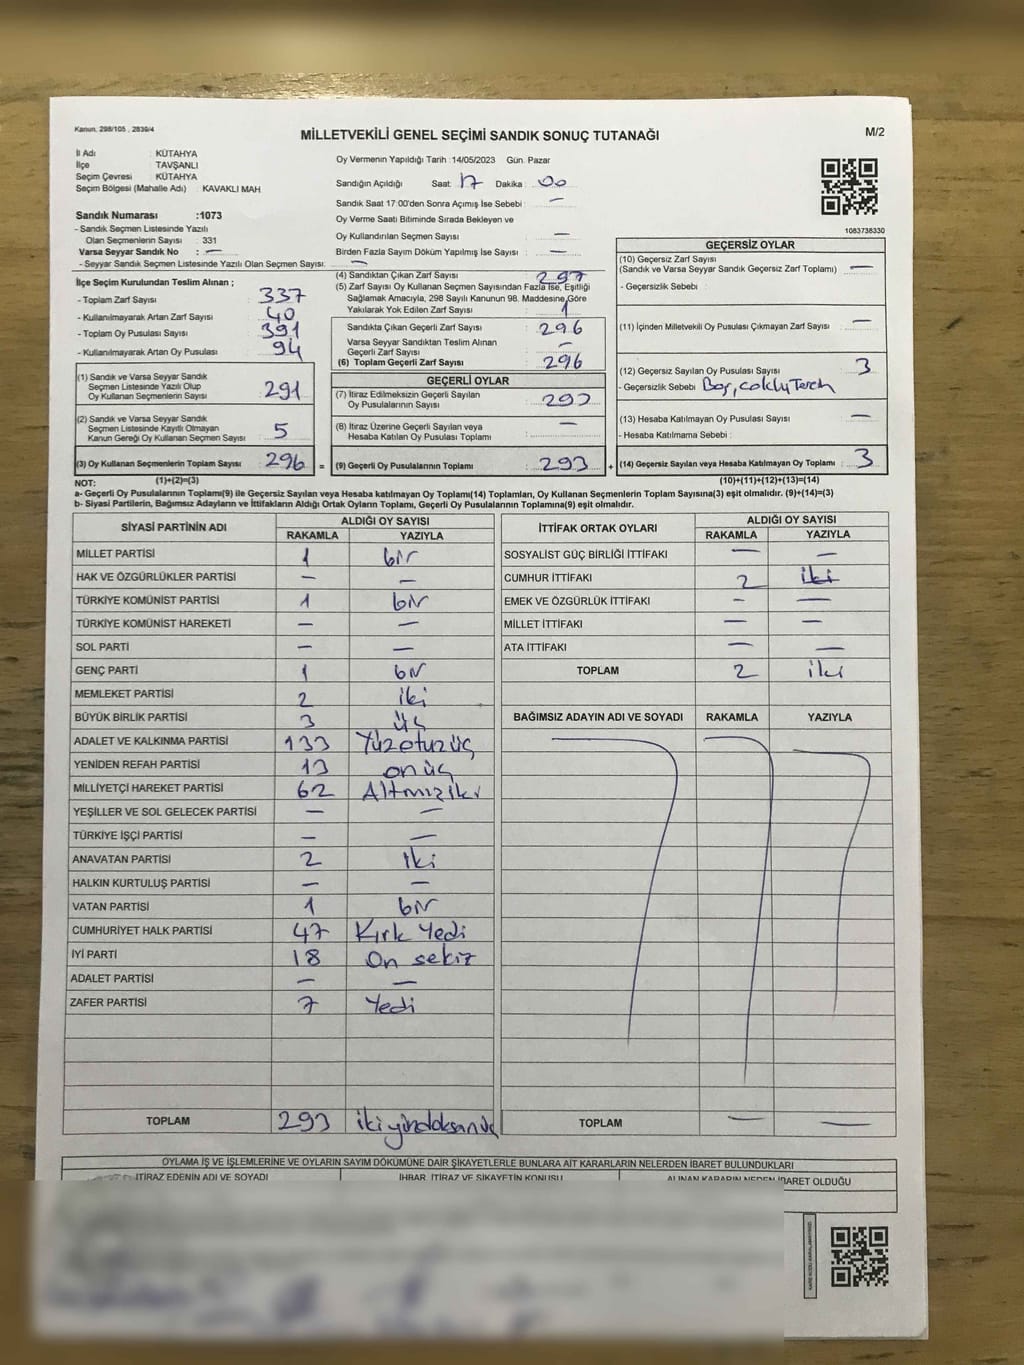 Kanun, 298/105 , 2839/4
MİLLETVEKİLİ GENEL SEÇİMİ SANDIK SONUÇ TUTANAĞI
M/2
İl Adı : KÜTAHYA
İlçe : TAVŞANLI
Seçim Çevresi : KÜTAHYA
Seçim Bölgesi (Mahalle Adı) : KAVAKLI MAH
Oy Vermenin Yapıldığı Tarih : 14/05/2023 Gün. Pazar
Sandığın Açıldığı Saat: 17 Dakika : 00
Sandık Saat 17:00'den Sonra Açımış İse Sebebi : —
Oy Verme Saati Bitiminde Sırada Bekleyen ve
Oy Kullandırılan Seçmen Sayısı : —
Birden Fazla Sayım Döküm Yapılmış İse Sayısı : —
1083738330
Sandık Numarası :1073
- Sandık Seçmen Listesinde Yazılı
Olan Seçmenlerin Sayısı : 331
Varsa Seyyar Sandık No : —
- Seyyar Sandık Seçmen Listesinde Yazılı Olan Seçmen Sayısı: —
İlçe Seçim Kurulundan Teslim Alınan ;
- Toplam Zarf Sayısı : 337
- Kullanılmayarak Artan Zarf Sayısı : 40
- Toplam Oy Pusulası Sayısı : 391
- Kullanılmayarak Artan Oy Pusulası : 94
(1) Sandık ve Varsa Seyyar Sandık
Seçmen Listesinde Yazılı Olup
Oy Kullanan Seçmenlerin Sayısı : 291
(2) Sandık ve Varsa Seyyar Sandık
Seçmen Listesinde Kayıtlı Olmayan
Kanun Gereği Oy Kullanan Seçmen Sayısı : 5
(3) Oy Kullanan Seçmenlerin Toplam Sayısı : 296 =
(4) Sandıktan Çıkan Zarf Sayısı : 297
(5) Zarf Sayısı Oy Kullanan Seçmen Sayısından Fazla İse, Eşitliği
Sağlamak Amacıyla, 298 Sayılı Kanunun 98. Maddesine Göre
Yakılarak Yok Edilen Zarf Sayısı : 1
Sandıkta Çıkan Geçerli Zarf Sayısı : 296
Varsa Seyyar Sandıktan Teslim Alınan
Geçerli Zarf Sayısı : —
(6) Toplam Geçerli Zarf Sayısı : 296
GEÇERLİ OYLAR
(7) İtiraz Edilmeksizin Geçerli Sayılan
Oy Pusulalarının Sayısı : 293
(8) İtiraz Üzerine Geçerli Sayılan veya
Hesaba Katılan Oy Pusulası Toplamı : —
(9) Geçerli Oy Pusulalarının Toplamı : 293 +
GEÇERSİZ OYLAR
(10) Geçersiz Zarf Sayısı
(Sandık ve Varsa Seyyar Sandık Geçersiz Zarf Toplamı) : —
- Geçersizlik Sebebi :
(11) İçinden Milletvekili Oy Pusulası Çıkmayan Zarf Sayısı : —
(12) Geçersiz Sayılan Oy Pusulası Sayısı : 3
- Geçersizlik Sebebi : Boş,
(13) Hesaba Katılmayan Oy Pusulası Sayısı : —
- Hesaba Katılmama Sebebi :
(14) Geçersiz Sayılan veya Hesaba Katılmayan Oy Pusulası Toplamı : 3
NOT: (1)+(2)=(3) (10)+(11)+(12)+(13)=(14)
a- Geçerli Oy Pusulalarının Toplamı(9) ile Geçersiz Sayılan veya Hesaba katılmayan Oy Toplamı(14) Toplamları, Oy Kullanan Seçmenlerin Toplam Sayısına(3) eşit olmalıdır. (9)+(14)=(3)
b- Siyasi Partilerin, Bağımsız Adayların ve İttifakların Aldığı Ortak Oyların Toplamı, Geçerli Oy Pusulalarının Toplamına(9) eşit olmalıdır.
SİYASİ PARTİNİN ADI ALDIĞI OY SAYISI
RAKAMLA YAZIYLA
MİLLET PARTİSİ 1 bir
HAK VE ÖZGÜRLÜKLER PARTİSİ — —
TÜRKİYE KOMÜNİST PARTİSİ 1 bir
TÜRKİYE KOMÜNİST HAREKETİ — —
SOL PARTİ — —
GENÇ PARTİ 1 bir
MEMLEKET PARTİSİ 2 iki
BÜYÜK BİRLİK PARTİSİ 3 üç
ADALET VE KALKINMA PARTİSİ 133 Yüzotuzüç
YENİDEN REFAH PARTİSİ 13 onüç
MİLLİYETÇİ HAREKET PARTİSİ 62 Altmışiki
YEŞİLLER VE SOL GELECEK PARTİSİ — —
TÜRKİYE İŞÇİ PARTİSİ — —
ANAVATAN PARTİSİ 2 iki
HALKIN KURTULUŞ PARTİSİ — —
VATAN PARTİSİ 1 bir
CUMHURİYET HALK PARTİSİ 47 Kırk Yedi
İYİ PARTİ 18 On sekiz
ADALET PARTİSİ — —
ZAFER PARTİSİ 7 Yedi
TOPLAM 293
İTTİFAK ORTAK OYLARI ALDIĞI OY SAYISI
RAKAMLA YAZIYLA
SOSYALİST GÜÇ BİRLİĞİ İTTİFAKI — —
CUMHUR İTTİFAKI 2 iki
EMEK VE ÖZGÜRLÜK İTTİFAKI — —
MİLLET İTTİFAKI — —
ATA İTTİFAKI — —
TOPLAM 2 iki
BAĞIMSIZ ADAYIN ADI VE SOYADI RAKAMLA YAZIYLA
TOPLAM — —
OYLAMA İŞ VE İŞLEMLERİNE VE OYLARIN SAYIM DÖKÜMÜNE DAİR ŞİKAYETLERLE BUNLARA AİT KARARLARIN NELERDEN İBARET BULUNDUKLARI
İTİRAZ EDENİN ADI VE SOYADI İHBAR, İTİRAZ VE ŞİKAYETİN KONUSU ALINAN KARARIN NEDEN İBARET OLDUĞU